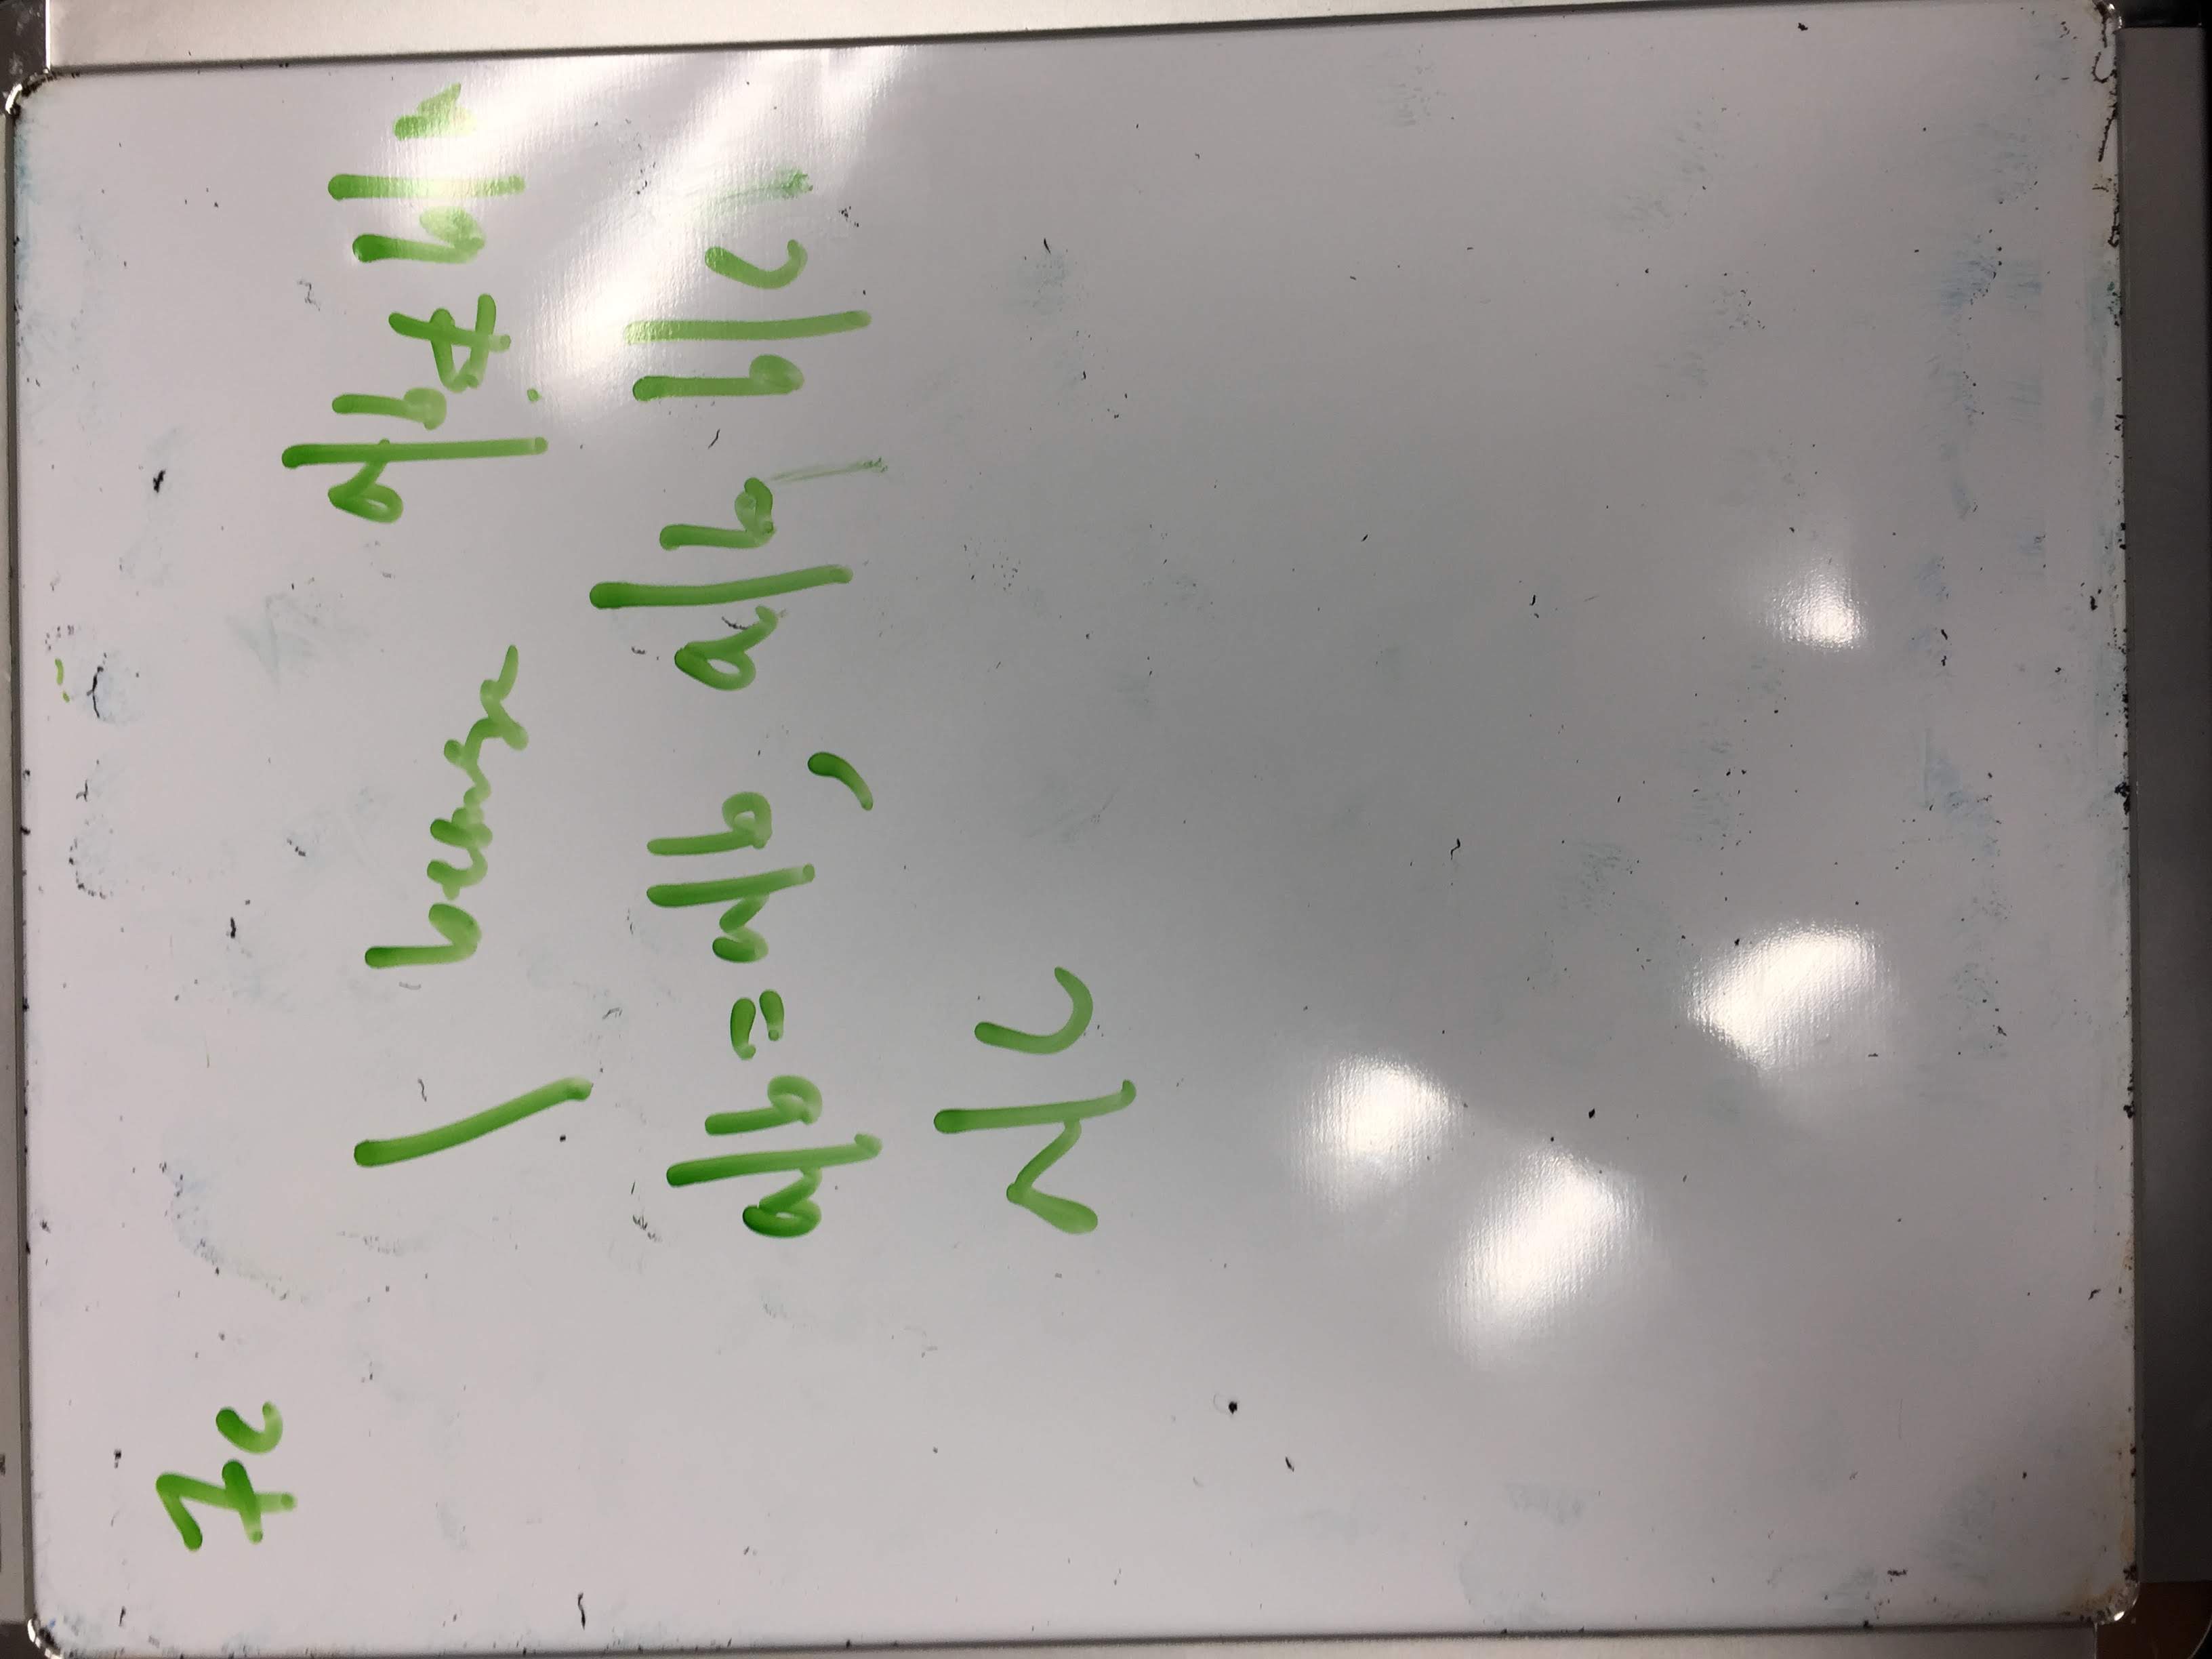 7c
| because a|b ≠ b|a
a|b = a|b, a|b, b|c
a|c